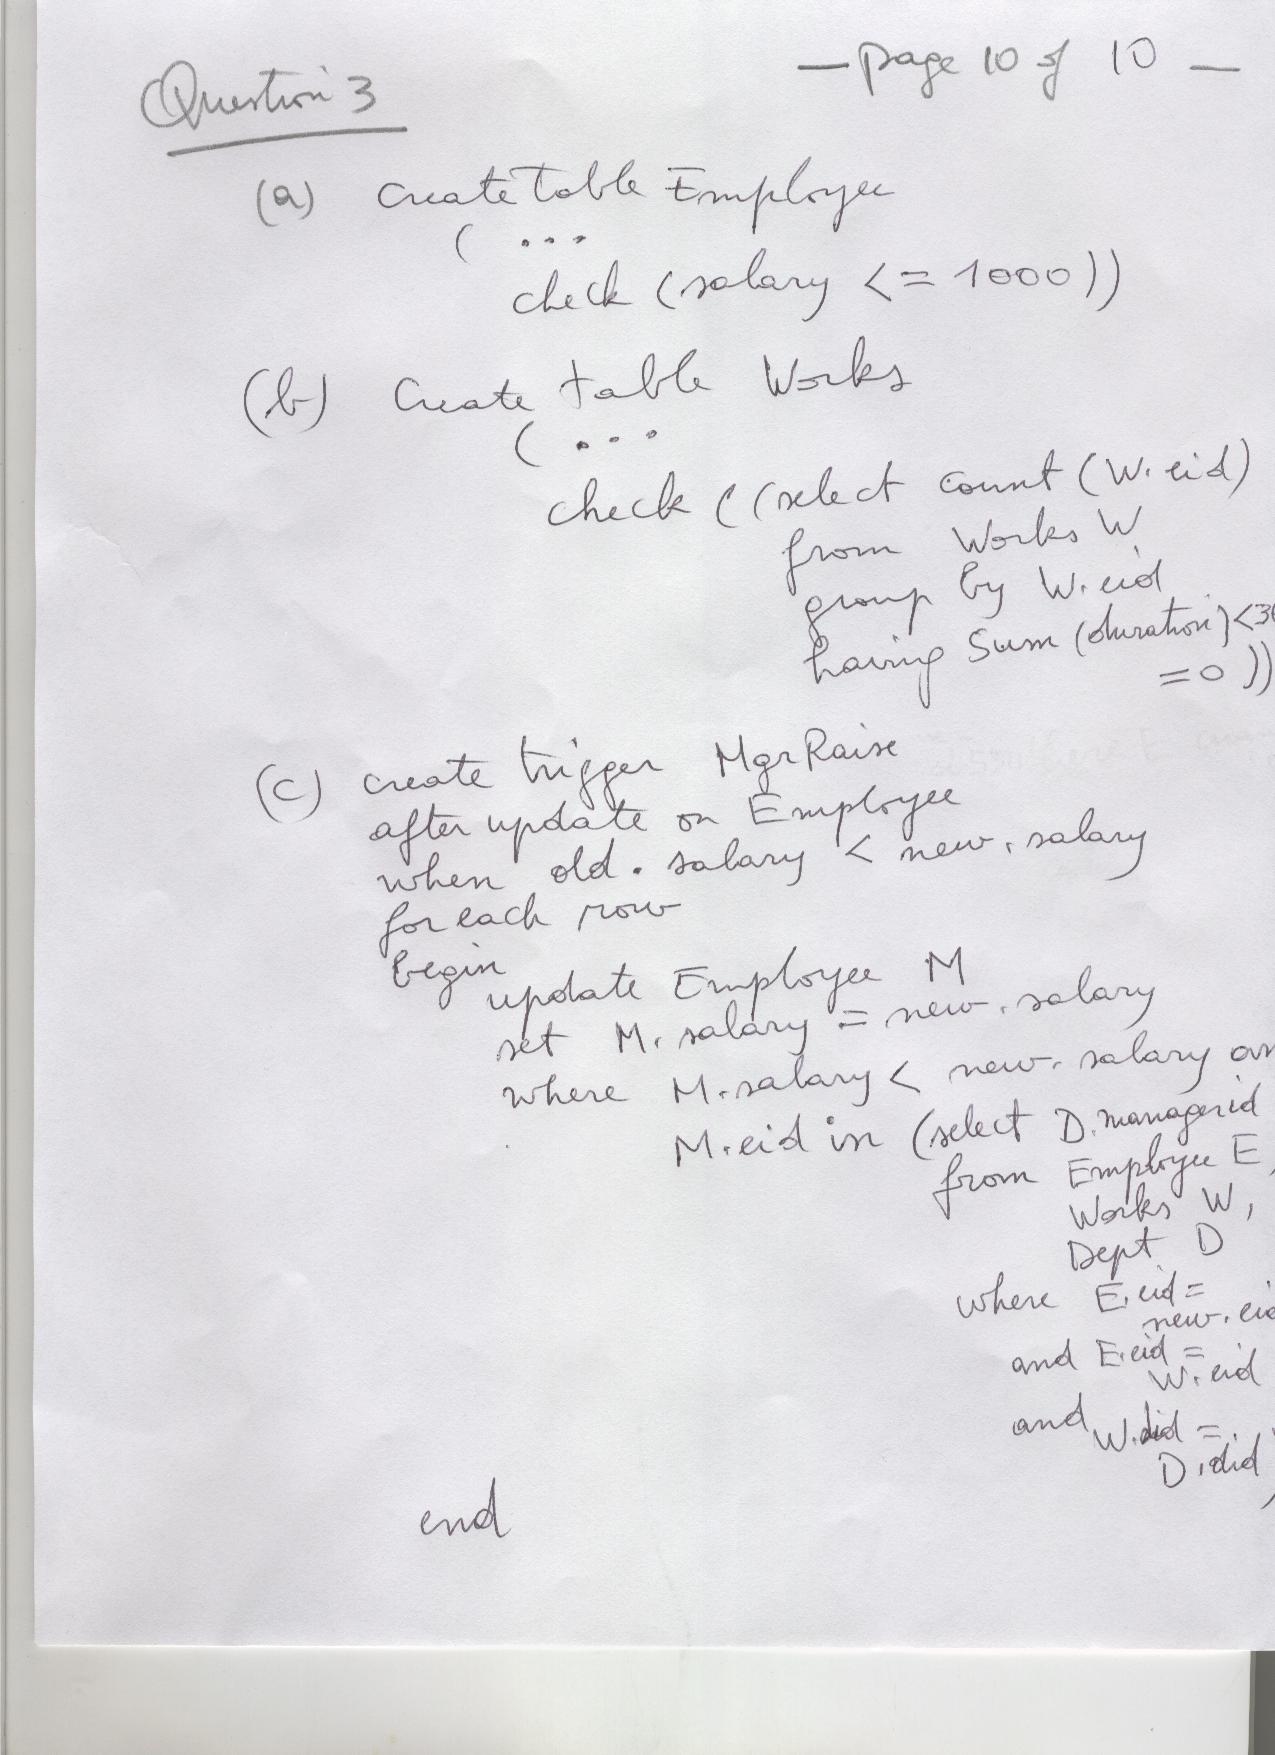 — page 10 of 10 —
Question 3
(a) Create Table Employee
( ...
check (salary <= 1000))
(b) Create table Works
( ...
check ((select count (W.eid)
from Works W
group by W.eid
having Sum (duration) <30
= 0 ))
(c) create trigger MgrRaise
after update on Employee
when old.salary < new.salary
for each row
begin
update Employee M
set M.salary = new.salary
where M.salary < new.salary an
M.eid in (select D.managerid
from Employee E,
Works W,
Dept D
where E.eid =
new.eid
and E.eid =
W.eid
and W.did =
D.did)
end